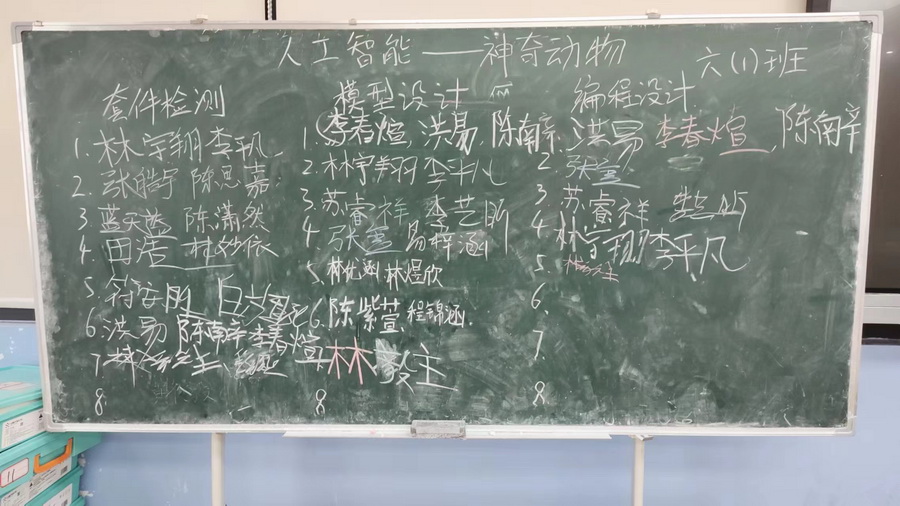 人工智能——神奇动物
六(1)班
套件检测
1. 林宇翔 李平凡
2. 张皓宇 陈思嘉
3 蓝天益 陈潇然
4. 田浩
5. 符安
6. 洪易 陈南辛 李春煊
7
8
模型设计
1. 李春煊, 洪易, 陈南辛
2. 林宇翔 李平凡
3. 苏睿祥 李芝昕
4 张 易梓涵
5. 林优涵 林煜欣
6. 陈紫萱 程锦涵.
林 主
8
编程设计
洪易 李春煊, 陈南辛
2. 张
3. 苏睿祥
4 林宇翔 李平凡
5.
6.
7
8